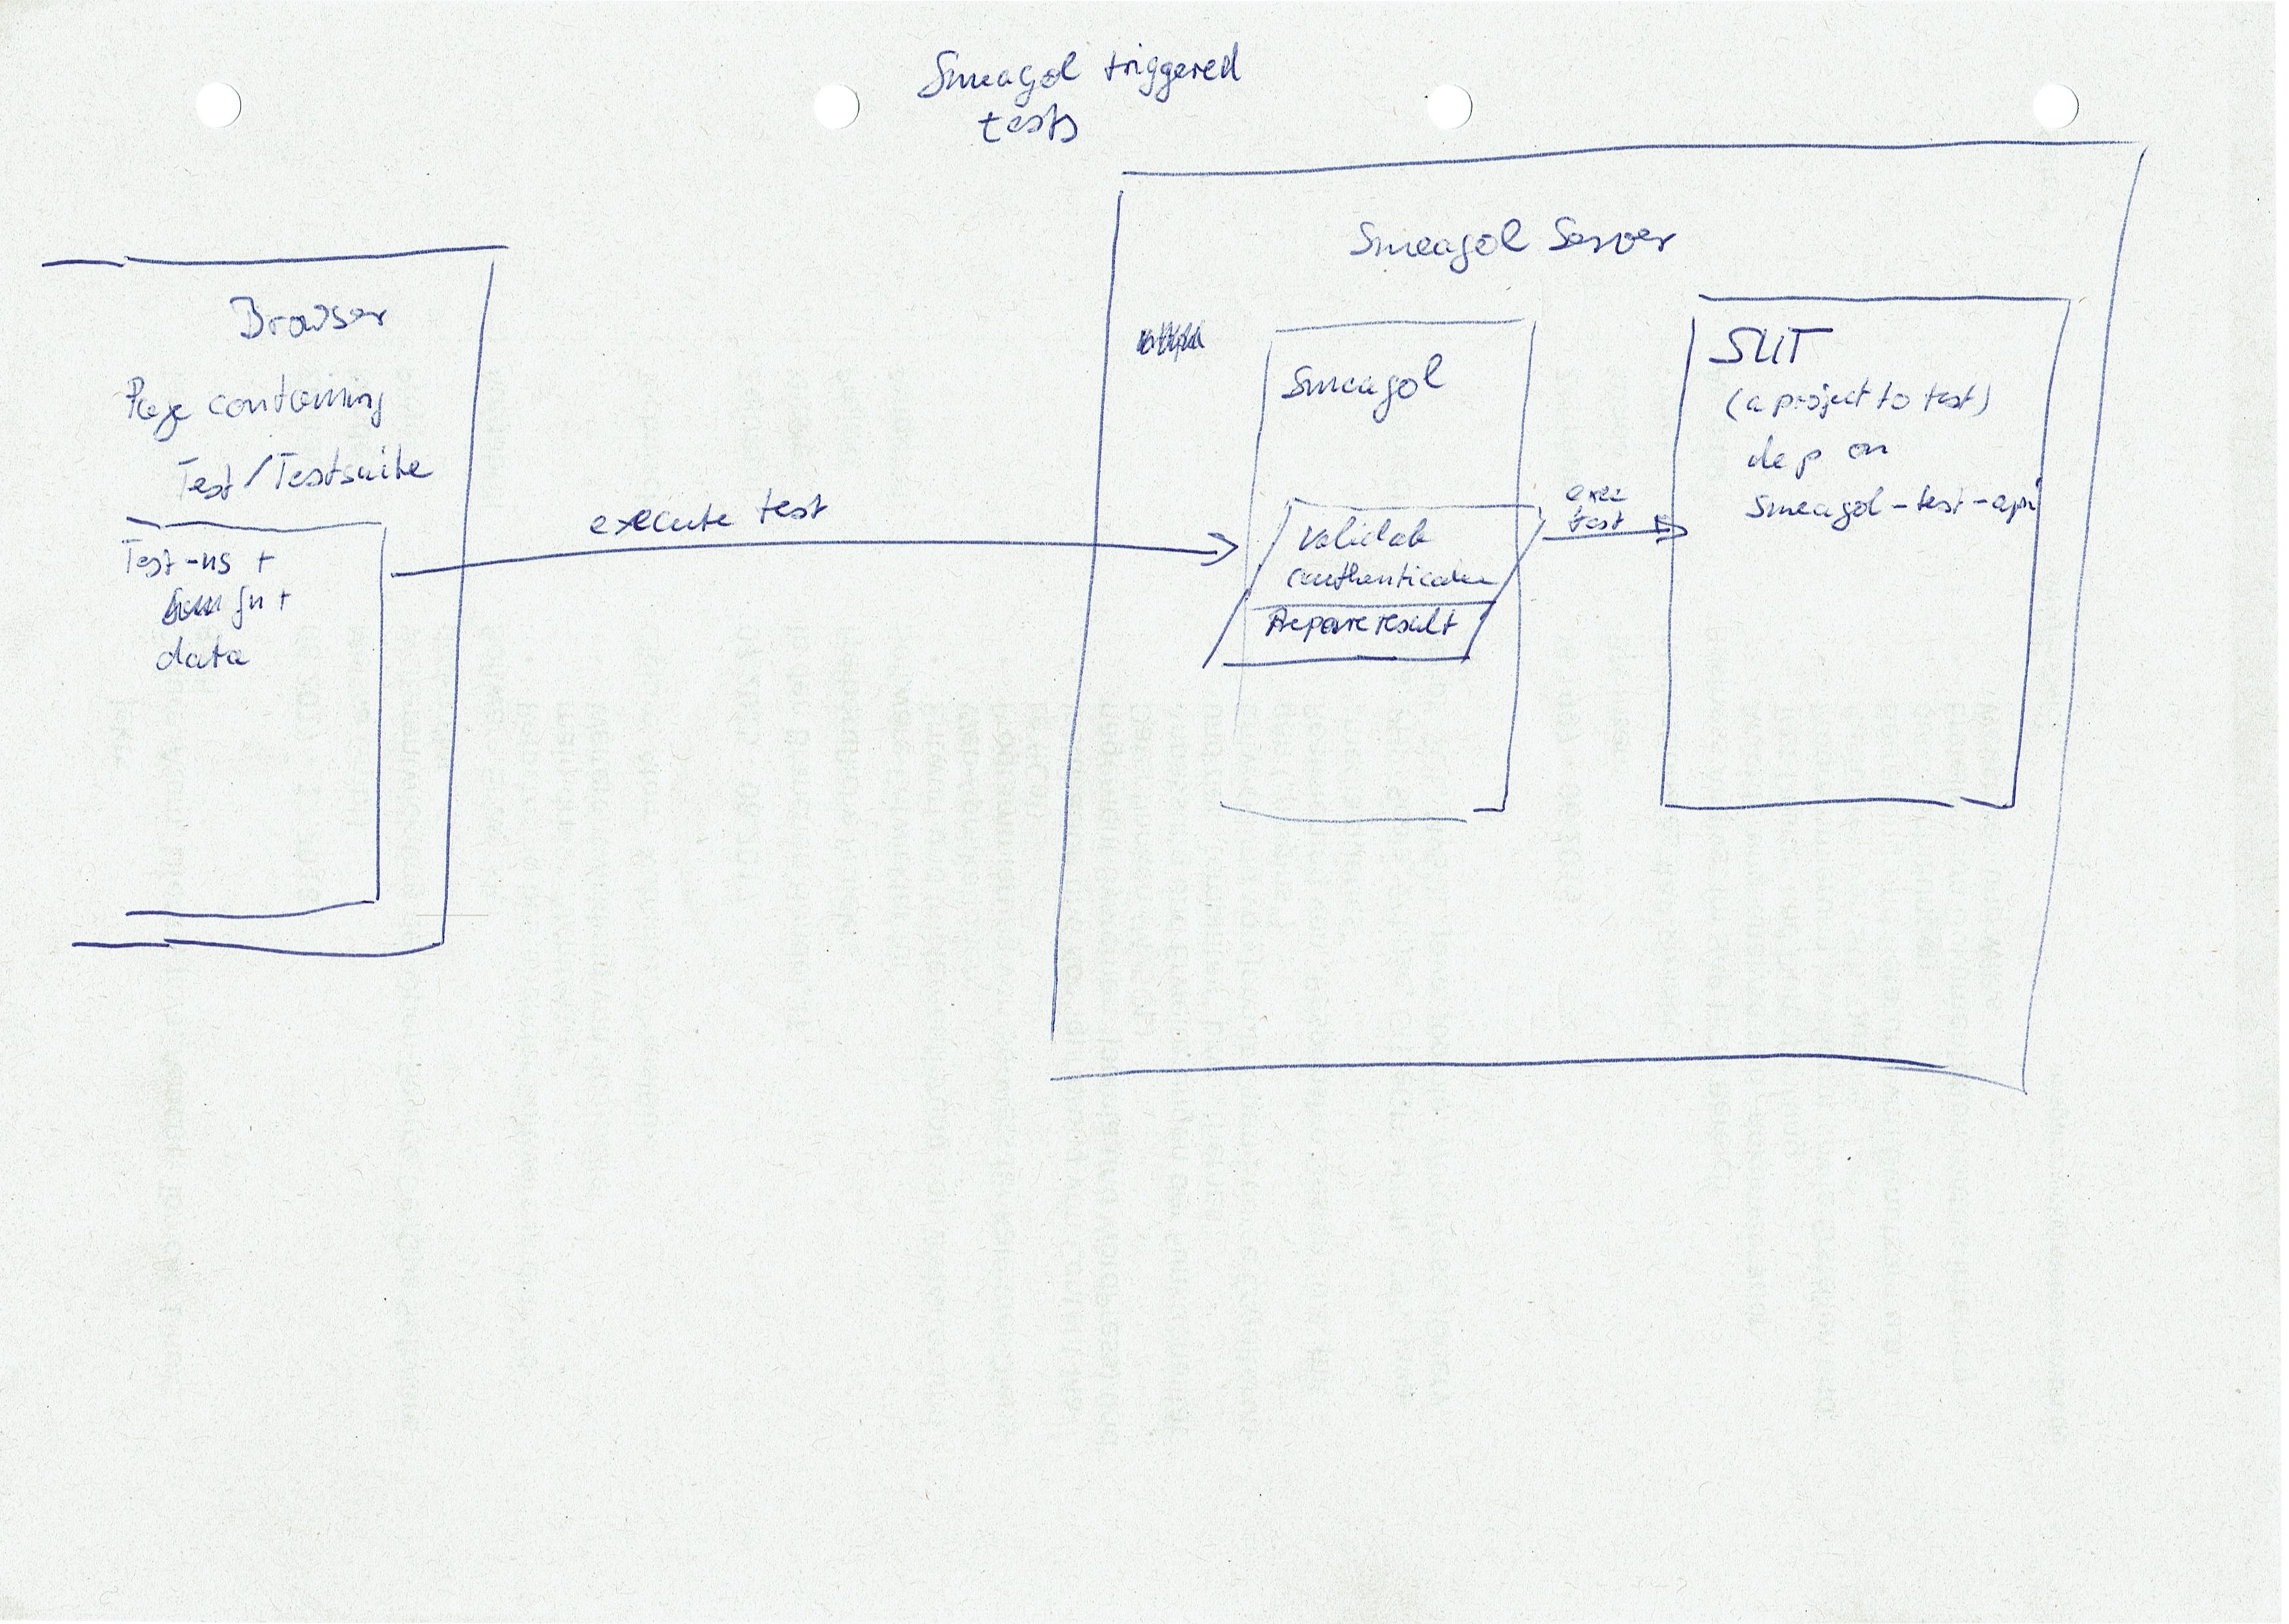 Smeagol triggered
tests
Browser
Page containing
Test/Testsuite
Test-ns +
fn +
data
execute test
Smeagol Server
Smeagol
Validate
authenticate
Prepare result
exec
test
SUT
(a project to test)
dep on
Smeagol-test-api